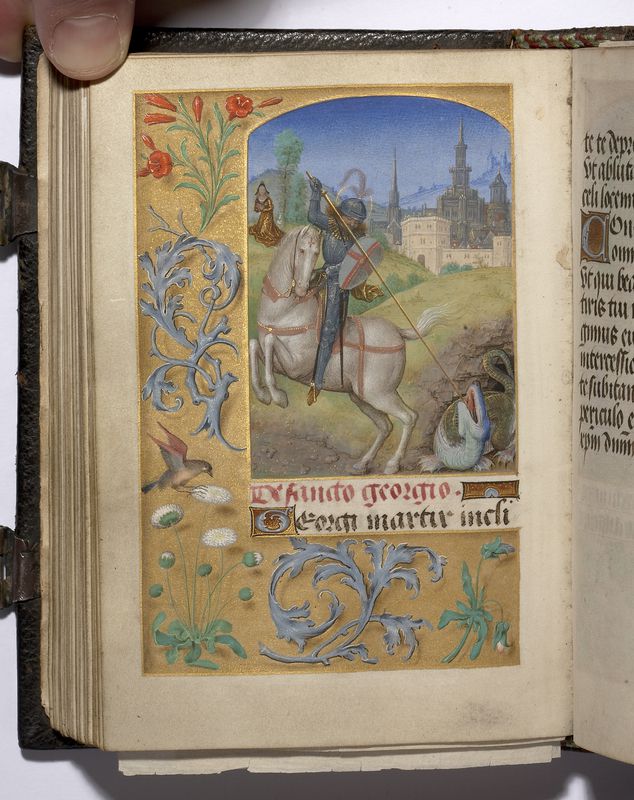 De sancto georgio.
Georgi martir incli
te te depr
vt abluti
celi locem
Ou
onn
vt qui be
tiris tui
gimus
intercessi
te subitan
periculo e